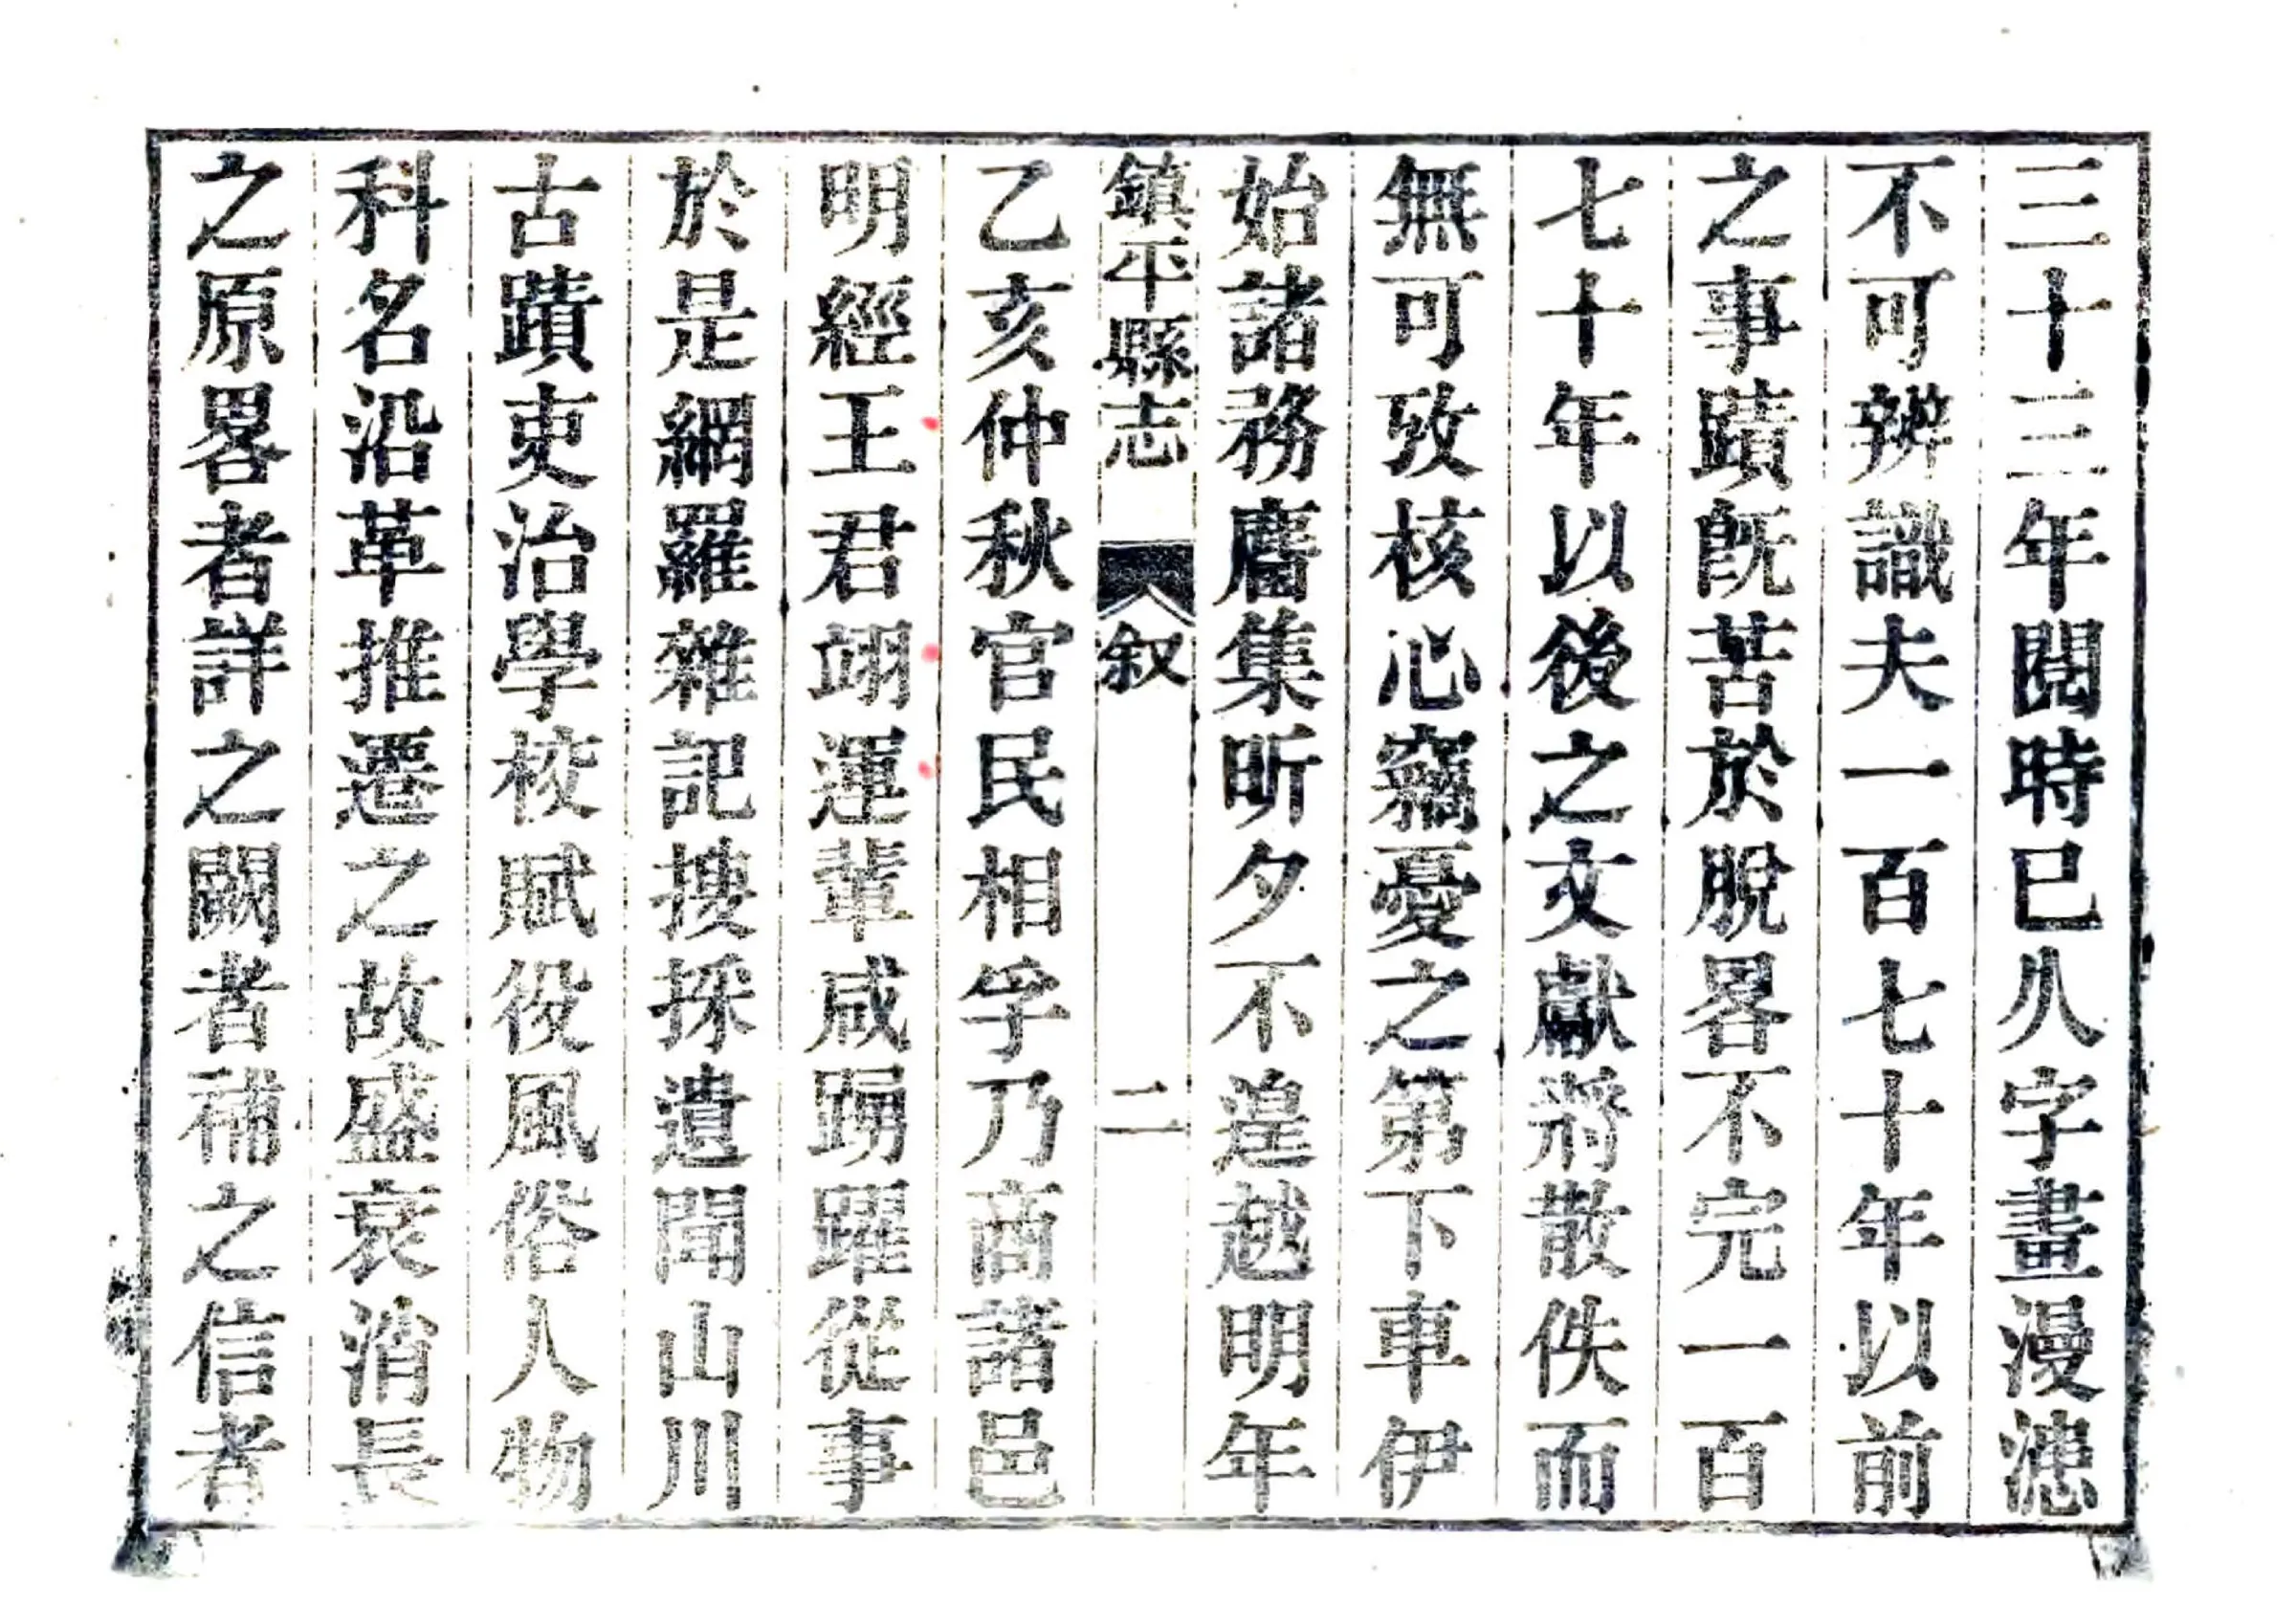 三十三年閱時已久字畫漫漶
不可辨識夫一百七十年以前
之事蹟旣苦於脫畧不完一百
七十年以後之文獻將散佚而
無可攷核心竊憂之第下車伊
始諸務麕集昕夕不遑越明年
鎮平縣志 叙 二
乙亥仲秋官民相孚乃商諸邑
明經王君翊運輩咸踴躍從事
於是網羅雜記搜採遺聞山川
古蹟吏治學校賦役風俗人物
科名沿革推遷之故盛衰消長
之原畧者詳之闕者補之信者